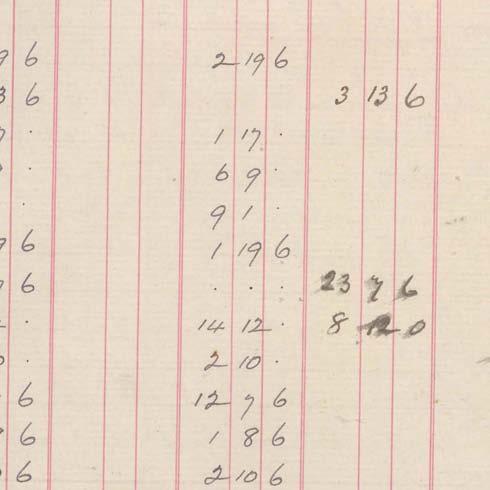 9 6 2 19 6
3 6 3 13 6
7 · 1 17 ·
· 6 9 ·
· 9 1 ·
9 6 1 19 6
9 6 · · · 23 7 6
· 14 12 · 8 12 0
0 · 2 10 ·
6 12 7 6
6 1 8 6
6 2 10 6